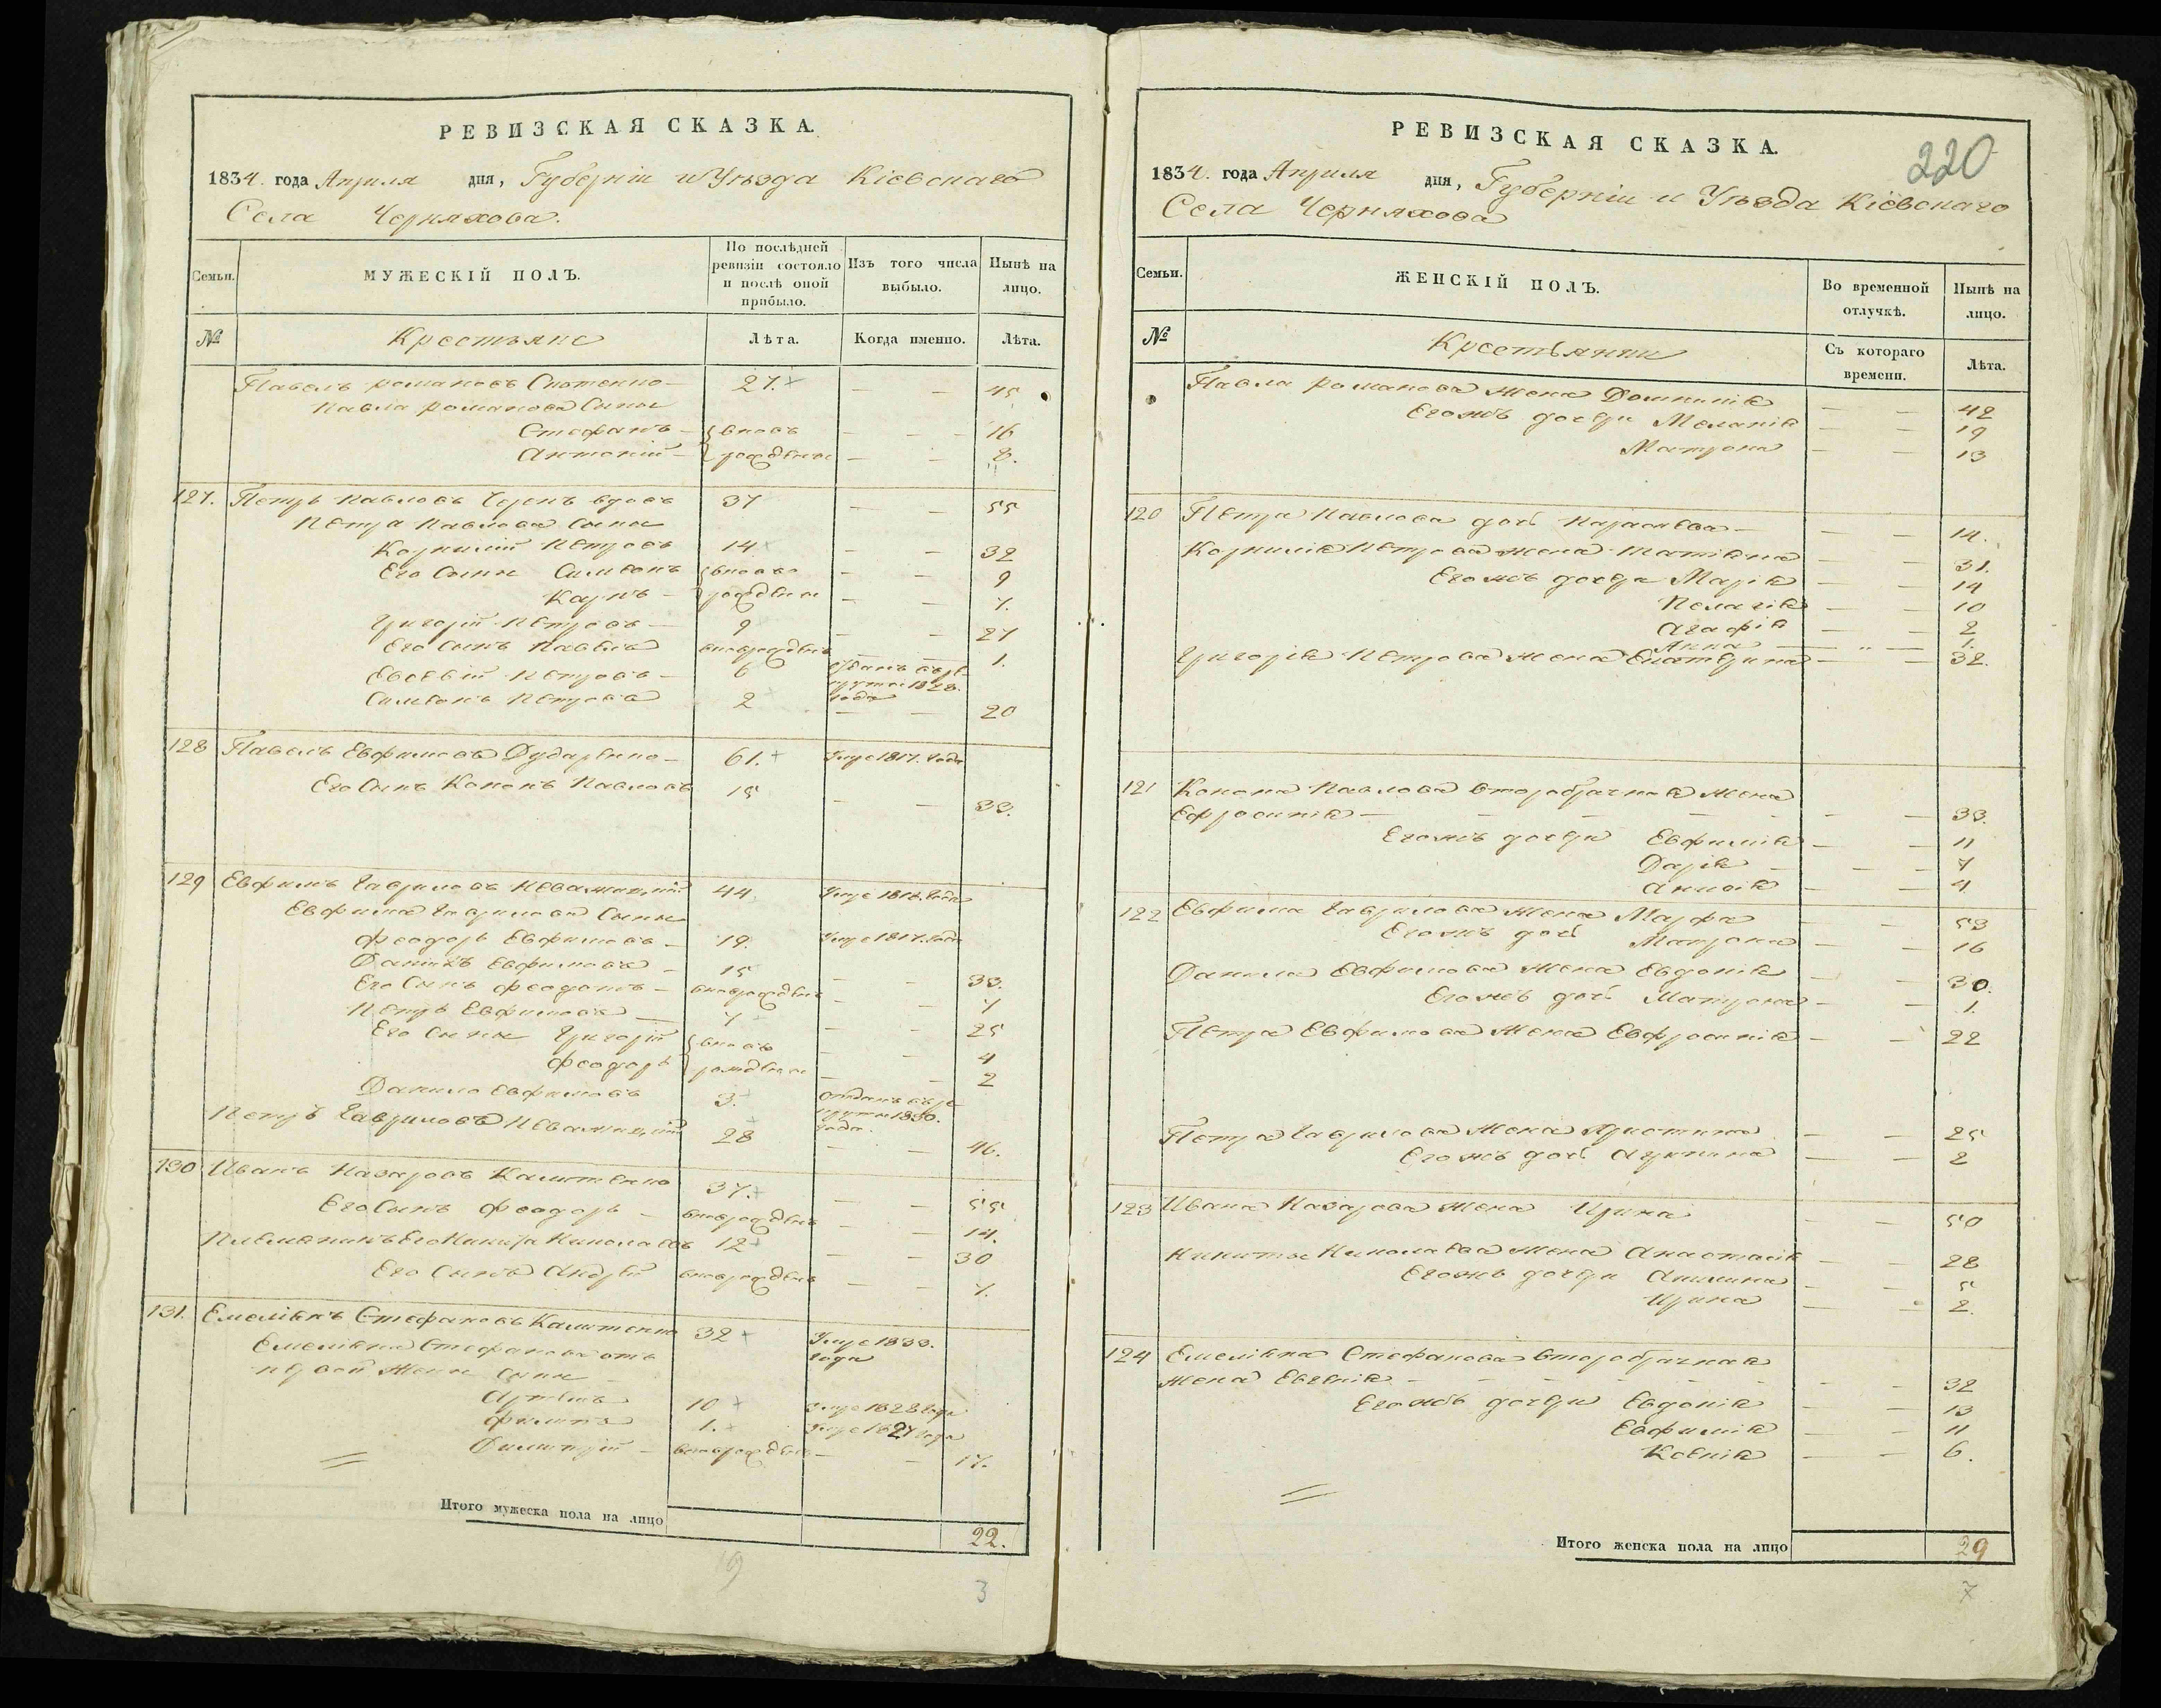 РЕВИЗСКАЯ СКАЗКА.
1834. года Апреля дня, Губерніи и Уѣзда Кіевскаго
Села Черняхова.
Семьи.
МУЖЕСКІЙ ПОЛЪ.
По послѣдней ревизіи состояло и послѣ оной прибыло.
Изъ того числа выбыло.
Нынѣ на лицо.
№
Крестьяне
Лѣта.
Когда именно.
Лѣта.
Павелъ романовъ 27. — — 45
Павла романова Сыны
Стефанъ — вновь — — — 16
Антоній — рожденны — — 8.
127. Петръ Павловъ вдовъ 37 — — 55
Петра Павлова Сыны
Корнилій Петровъ 14 — — 32
Его Сыны Симеонъ вновь — — 9
Карпъ — рожденны — — 7.
Григорій Петровъ — 9 — — 27
Его Сынъ Павелъ вноврожденъ — — 1.
Евсевій Петровъ — 6 отданъ въ рекруты 1828. года
Симеонъ Петровъ 2 — — 20
128 Павелъ Евфимовъ Дударенко — 61. Умре 1817. года
Его Сынъ Кононъ Павловъ 15 — — 33.
129 Евфимъ Гавриловъ 44 Умре 1818. года
Евфима Гаврилова Сыны
Феодоръ Евфимовъ — 19. Умре 1817. года
Даніилъ Евфимовъ — 15 — — 33.
Его Сынъ Феодотъ — вноврожденъ — — 7
Петръ Евфимовъ — 7 — — 25
Его Сыны Григорій вновь — — 4
Феодоръ рожденны — — 2
Данило Евфимовъ 3. отданъ въ рекруты 1830. года.
Петръ Гавриловъ 28 — — 46.
130 Иванъ Назаровъ Калитенко 37. — — 55
Его Сынъ Феодоръ — вноврожденъ — — 14.
Племянникъ Его Никита Николаевъ 12 — — 30
Его Сынъ Андрей вноврожденъ — — 7.
131. Емеліянъ Стефановъ Калитенко 32 Умре 1833. года
Емеліяна Стефанова отъ
первой Жены сыны
Артемъ 10 Умре 1828 года
Филипъ 1. Умре 1827 года
Димитрій — вноврожденъ — — 17.
Итого мужеска пола на лицо 22.
19
3
РЕВИЗСКАЯ СКАЗКА.
220
1834. года Апреля дня, Губерніи и Уѣзда Кіевскаго
Села Черняхова
Семьи.
ЖЕНСКІЙ ПОЛЪ.
Во временной отлучкѣ.
Нынѣ на лицо.
№
Крестьянки
Съ котораго времени.
Лѣта.
Павла романова жена Домникія — — 42
Егожъ дочери Меланія — — 19
Матрона — — 13
120 Петра Павлова дочь Параскева — — — 14.
Корнилія Петрова жена Татіяна — — 31.
Егожъ дочери Марія — — 14
Пелагія — — 10
Агафія — — 2
Анна — „ — 1.
Григорія Петрова жена Екатерина — — 32.
121 Конона Павлова второбрачная жена
Ефросинія — — — 33.
Егожъ дочери Евфимія — — 11
Дарія — — — 7
Анисія — — 4
122 Евфима Гаврилова жена Марфа — — 53
Егожъ дочь Матрона — — 16
Данила Евфимова жена Евдокія — — 30.
Егожъ дочь Матрона — — 1.
Петра Евфимова жена Евфросинія — — 22
Петра Гаврилова жена Христина — — 25
Егожъ дочь Агрипина — — 2
123 Ивана Назарова жена Ирина — — 50
Никиты Николаева жена Анастасія — — 28
Егожъ дочери Акилина — — 5
Ирина — — 2.
124 Емеліяна Стефанова второбрачная
жена Евгенія — — — 32
Егожъ дочери Евдокія — — 13
Евфимія — — 11
Ксенія — — 6.
Итого женска пола на лицо 29
7